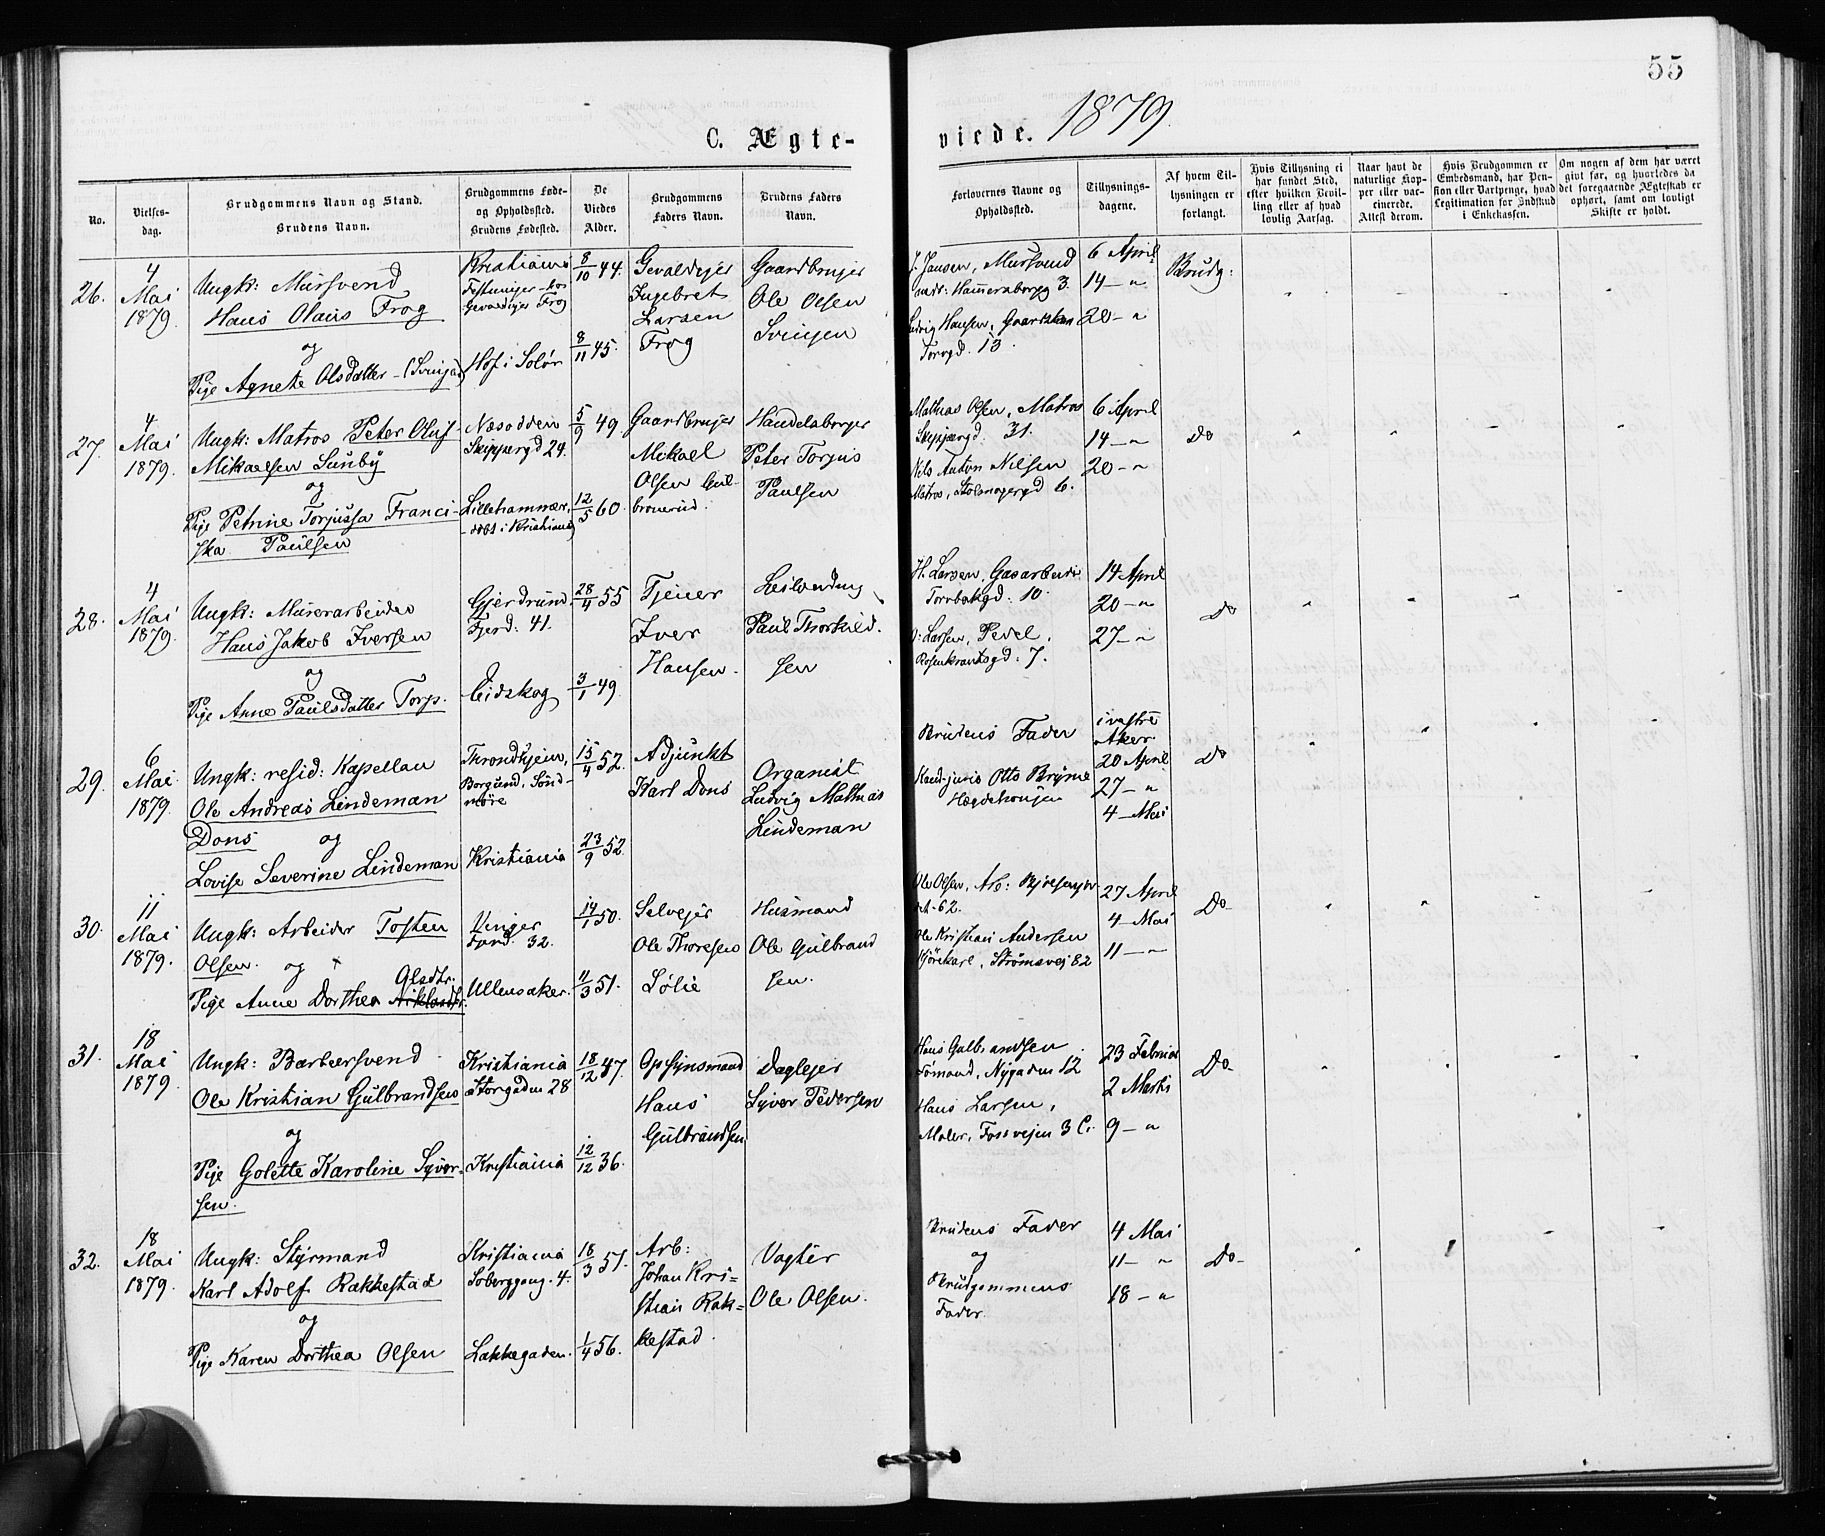 55
C. Ægte-
viede. 1879.
No.
Vielses-
dag.
Brudgommens Navn og Stand.
Brudens Navn.
Brudgommens Føde-
og Opholdssted.
Brudens Fødested.
De
Viedes
Alder.
Brudgommens
Faders Navn.
Brudens Faders
Navn.
Forlovernes Navne og
Opholdssted.
Tillysnings-
dagene.
Af hvem Til-
lysningen er
forlangt.
Hvis Tillysning ei
har fundet Sted,
efter hvilken Bevil-
ling eller af hvad
lovlig Aarsag.
Naar havt de
naturlige Kop-
per eller vac-
cinerede.
Attest derom.
Hvis Brudgommen er
Embedsmand, har Pen-
sion eller Vartpenge, hvad
Legitimation for Indskud
i Enkekassen.
Om nogen af dem har været
gift før, og hvorledes da
det foregaaende Ægteskab er
ophørt, samt om lovligt
Skifte er holdt.
26.
4
Mai
1879.
Ungk: Mursvend
Hans Olaus Frog
og
Pige Agnete Olsdatter
Kristiania
Gevaldiger Frog
Hof i Solør
8/10 44.
8/11 45.
Gevaldiger
Ingebret
Larsen
Frog
Gaardbruger
Ole Olsen
Svingen
J. Jansen, Mursvend
Hammersborgg 3.
Ludvig Hansen,
Torvgd. 13.
6 April
14 – "
20 – "
Brudg:
27.
4
Mai
1879.
Ungk: Matros Peter Oluf
Mikaelsen Sunby
og
Pige Petrine Torjussa Franci-
ska Paulsen
Næsodden
Skippergd 24.
Lillehammer,
døbt i Kristiania
5/9 49.
12/5 60.
Gaardbruger
Mikael
Olsen Gul-
bronerud.
Handelsborger
Peter Torjus
Paulsen
Mathias Olsen, Matros
Skippergd. 31.
Nils Anton Nilsen
Matros, Stolmagergd 6.
6 April
14 – "
20 – "
Do
28.
4
Mai
1879.
Ungk: Murerarbeider
Hans Jakob Iversen
og
Pige Anne Paulsdatter Torp.
Gjerdrum
Fjerd. 41.
Eidskog
28/4 55
3/1 49.
Tjener
Iver
Hansen.
Leilending
Paul Thorkild-
sen
H. Larsen, Gasarbeider
Torvbakgd: 10.
Larsen, Pedel,
Rosenkrantsgd: 7.
14 April
20 – "
27 – "
Do
29.
6
Mai
1879.
Ungk: resid: Kapellan
Ole Andreas Lindeman
Dons og
Lovise Severine Lindeman
Throndhjem,
Borgund, Sønd-
møre
Kristiania
15/4 52.
23/9 52.
Adjunkt
Karl Dons
Organist
Ludvig Mathias
Lindeman
Brudens Fader
Kand. juris Otto Bryme
Hægdehougen
i vestre
Aker
20 April
27 – "
4 – Mai
Do
30.
11
Mai
1879.
Ungk: Arbeider Tosten
Olsen. og
Olsdtr.
Pige Anne Dorthea
Vinger
Fjerd. 32.
Ullensaker.
14/1 50.
11/3 51.
Selveier
Ole Thoresen
Lølie
Husmand
Ole Gulbrand
sen.
Ole Olsen, Arb:
62.
Ole Kristian Andersen
Kjørekarl, Strømsvej 82
27 April
4 – Mai
11 – "
Do
31.
18
Mai
1879.
Ungk: Barbeersvend
Ole Kristian Gulbrandsen
og
Pige Golette Karoline Syver-
sen.
Kristiania
Storgaden 28
Kristiania
18/12 47.
12/12 36.
Opsynsmand
Hans
Gulbrandsen
Daglejer
Syver Pedersen
Hans Gulbrandsen
Formand, Nygaden 12
Hans Larsen,
Maler, Fossvejen 3 C.
23 Februar
2 Marts
9 – "
Do
32.
18
Mai
1879.
Ungk: Styrmand
Karl Adolf Rakkestad
og
Pige Karen Dorthea Olsen
Kristiania
Soberggang. 4.
Lakkegaden.
18/3 51.
1/4 56.
Arb:
Johan Kri-
stian Rak-
kestad.
Vagter
Ole Olsen.
Brudens Fader
og
Brudgommens
Fader.
4 Mai
11 – "
18 – "
Do